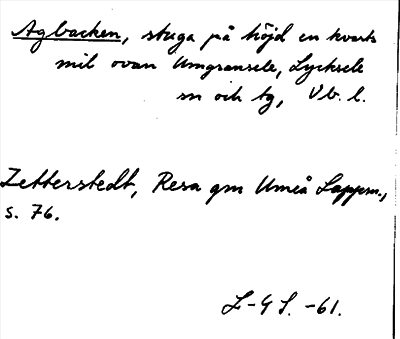 Agbacken, stuga på höjd en kvarts
mil ovan Umgransele, Lycksele
sn och tg, Vb. l.
Zetterstedt, Resa gm Umeå Lappm.,
s. 76.
L-G L. -61.